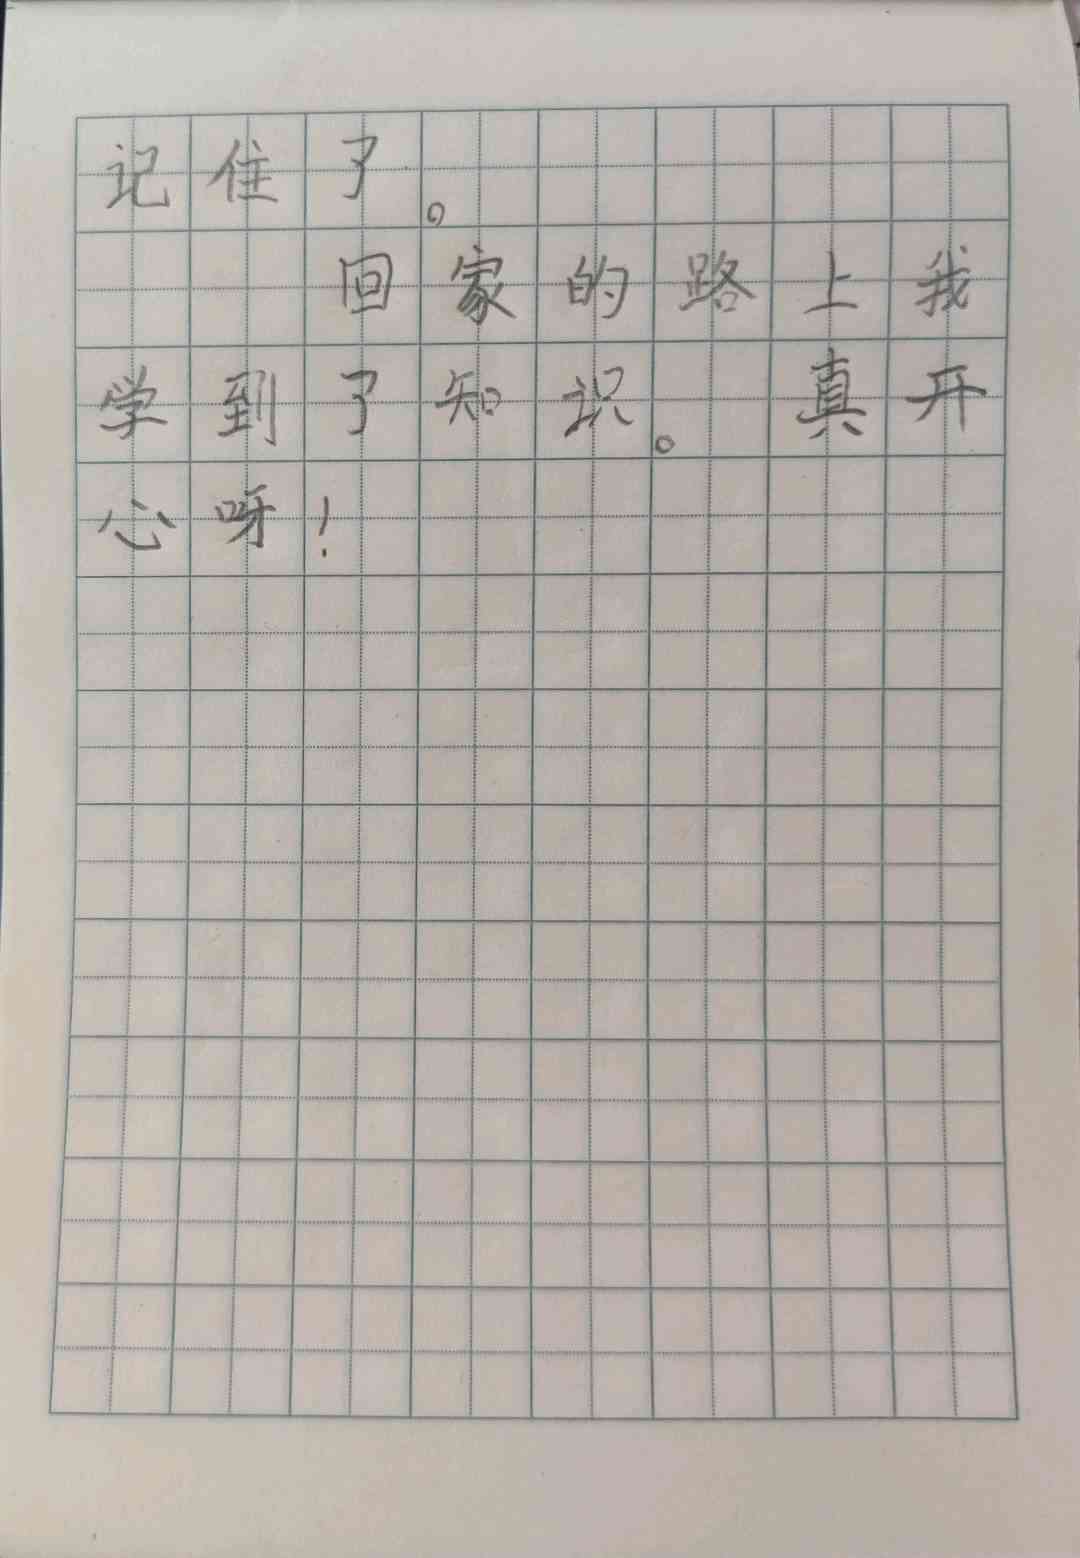 记住了。
回家的路上我
学到了知识。真开
心呀！